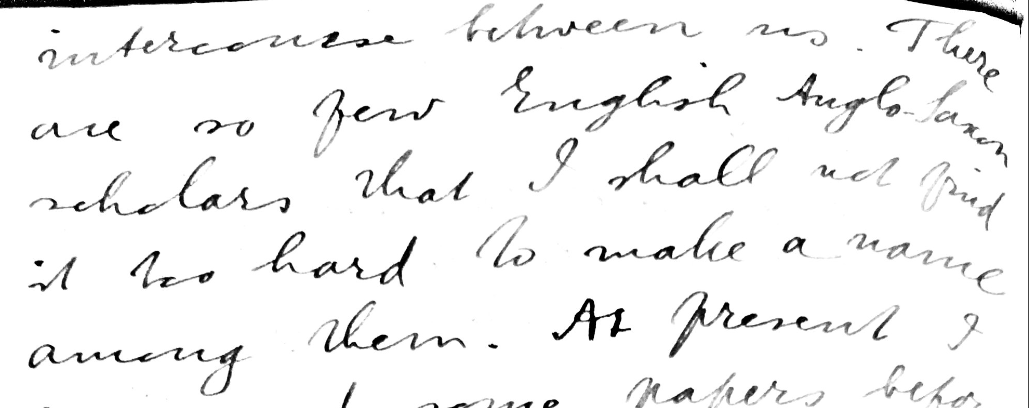 intercourse between us. There
are so few English Anglo-Saxon
scholars that I shall not find
it too hard to make a name
among them. At present I
some papers